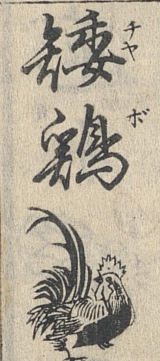 矮鶏
チヤボ